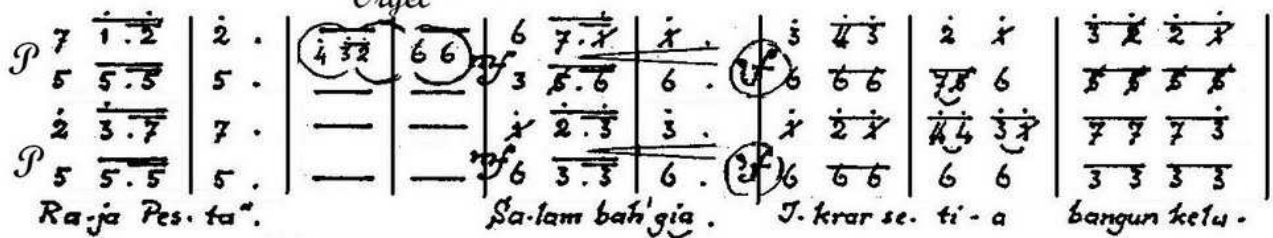 Orgel
P 7 1̇ . 2̇ | 2̇ . | 4̇ 3̇2̇ | 6 6 | mf 6 7 . 1̸̇ | 1̸̇ . | 2f 3̇ 4̸̇ 3̇ | 2̇ 1̸̇ | 3̇ 2̸̇ 2̇ 1̸̇ |
5 5 . 5 | 5 . | — | — | 3 5̸ . 6 | 6 . | 6 6 6 | 7̸5̸ 6 | 5̸ 5̸ 5̸ 5̸ |
2̇ 3̇ . 7 | 7 . | — | — | 1̸̇ 2̇ . 3̇ | 3̇ . | 1̸̇ 2̇ 1̸̇ | 4̸̇ 4̇ 3̇ 1̸̇ | 7 7 7 3̇ |
P 5 5 . 5 | 5 . | — | — | mf 6 3 . 5 | 6 . | 2f 6 6 6 | 6 6 | 3 3 3 3 |
Ra-ja Pes-ta". Sa-lam bah'gia. I-krar se-ti-a bangun kelu-